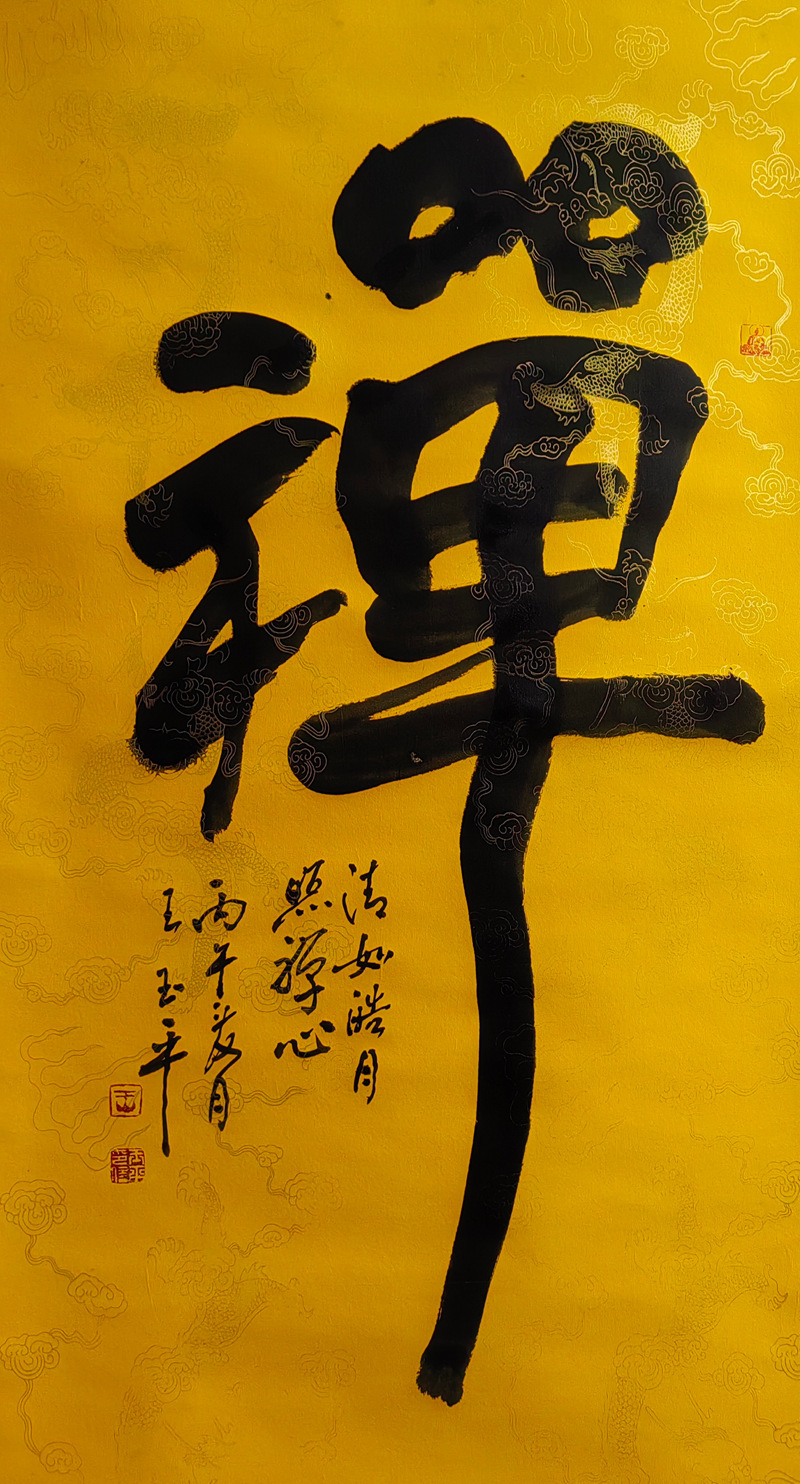 禪
清如皓月
照禪心
丙午夏月
王玉平
王